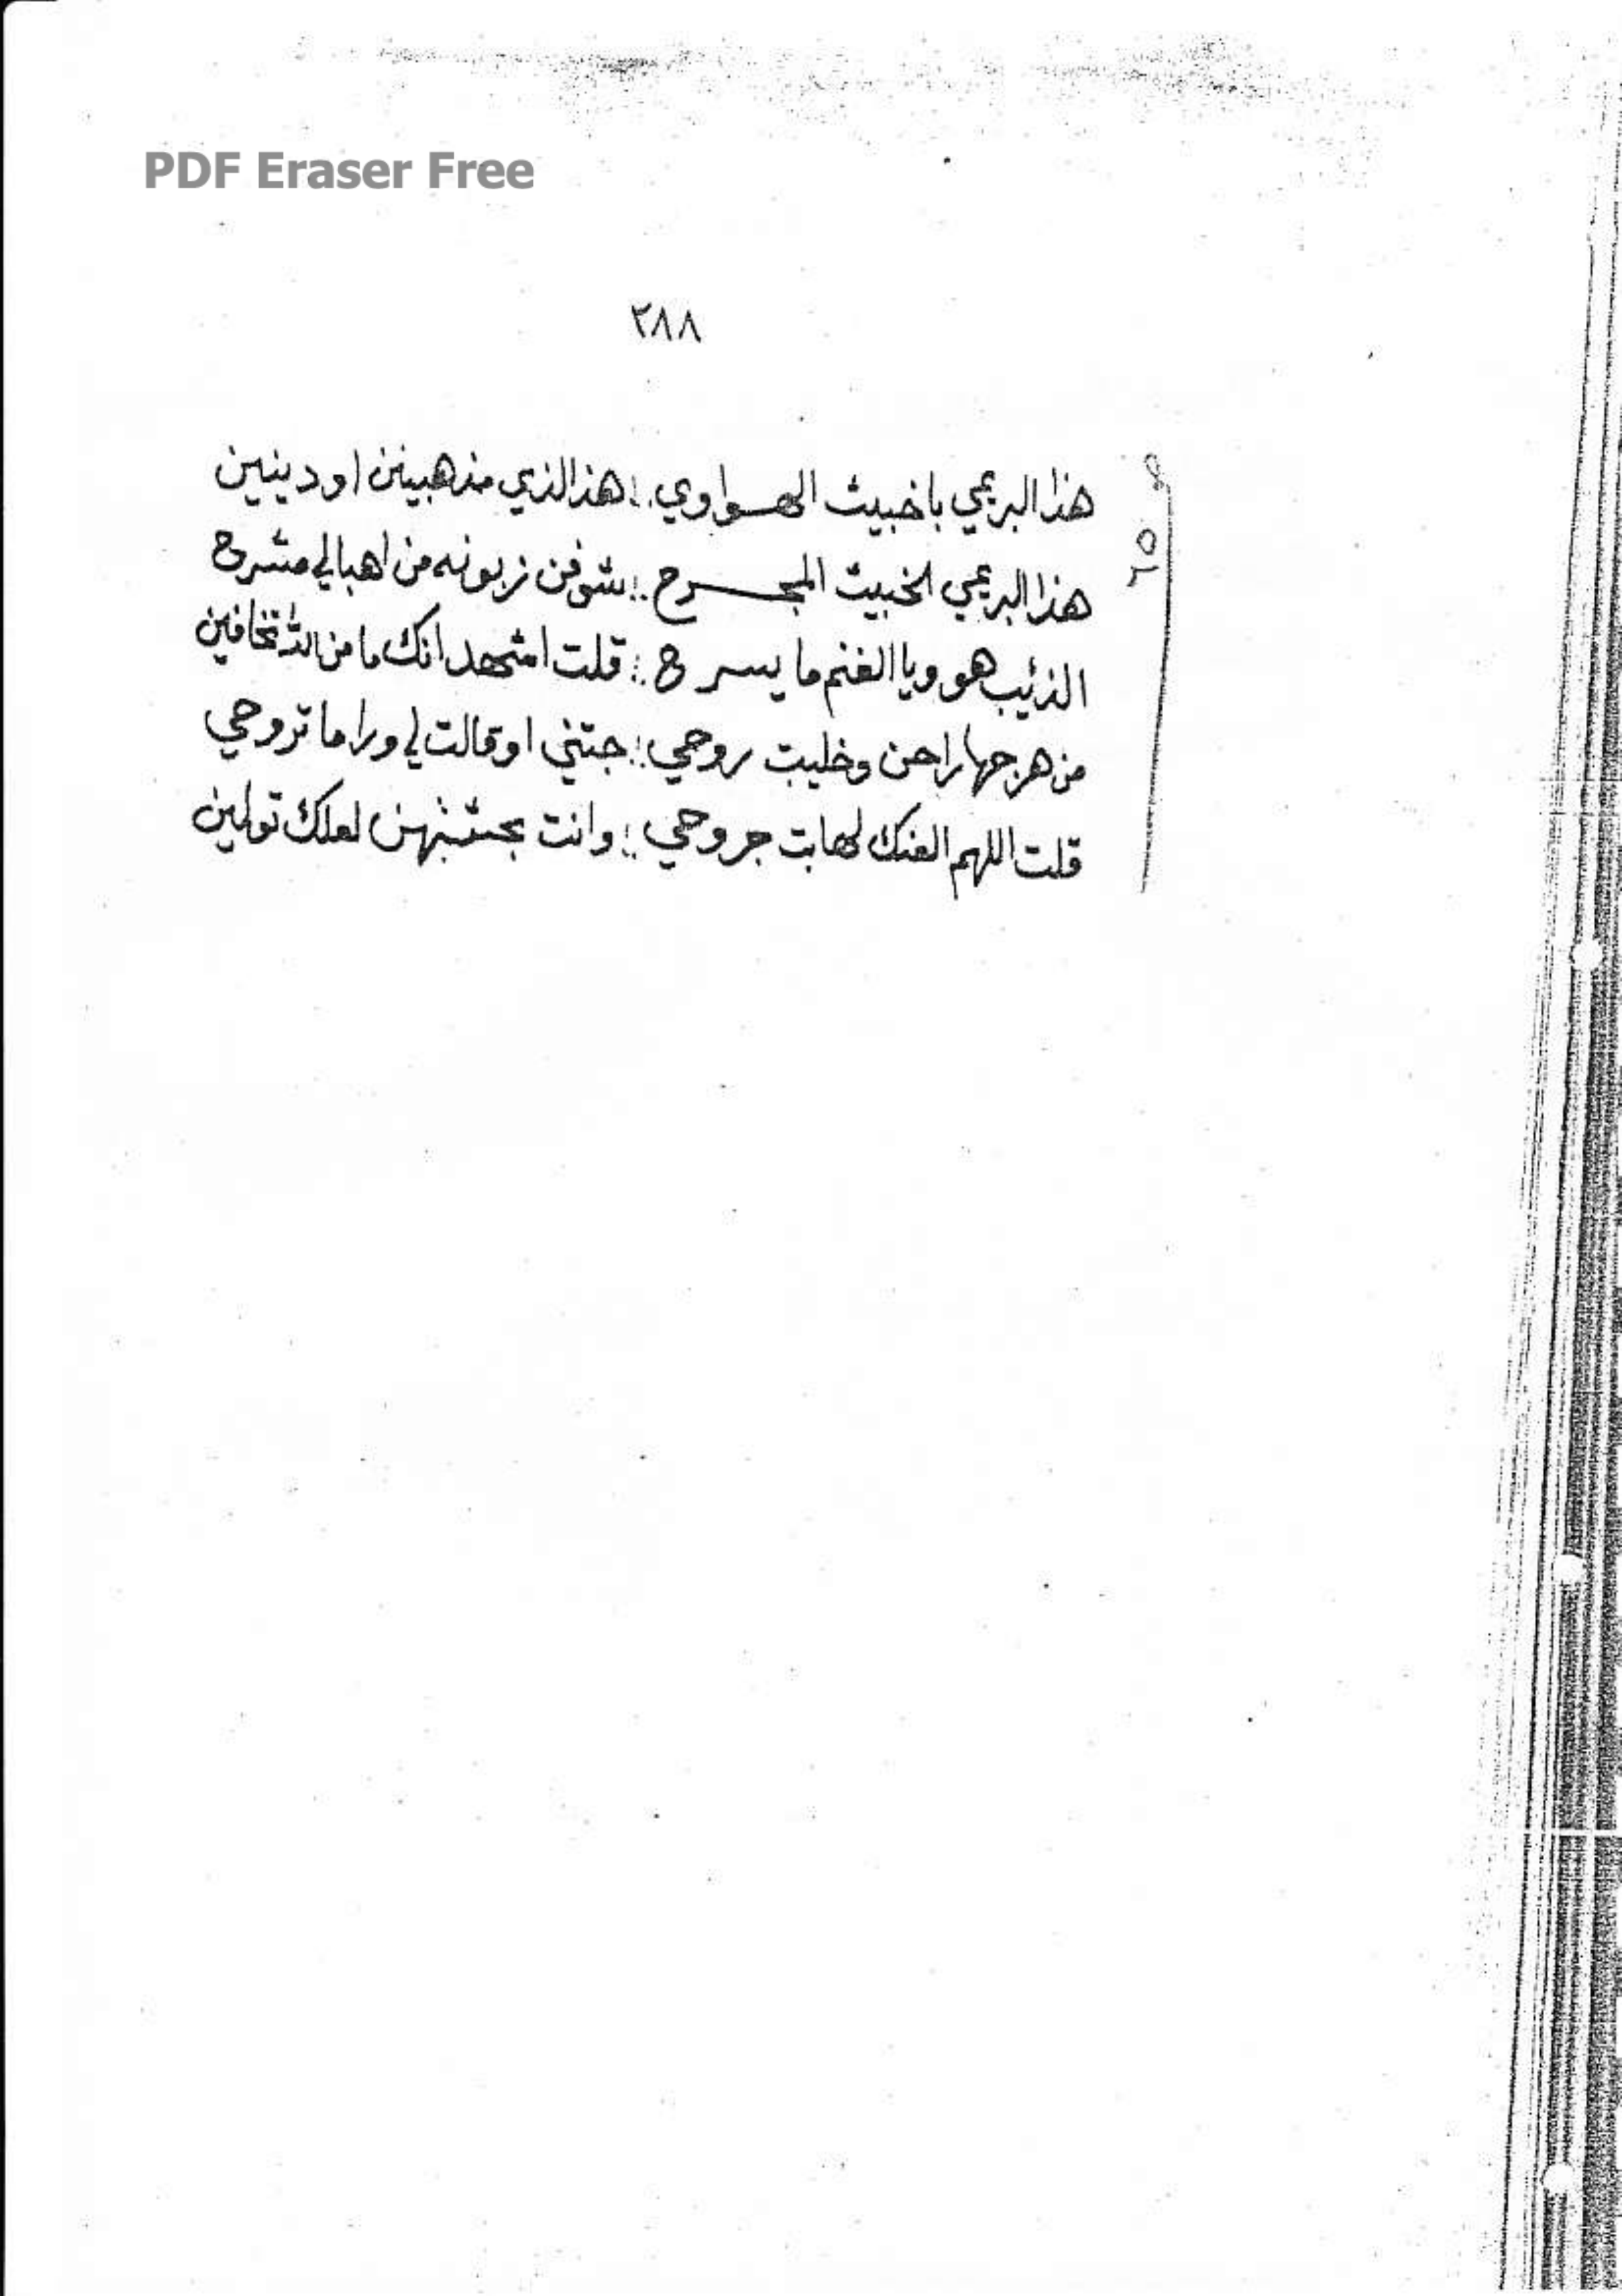 PDF Eraser Free
٣٨٨
هذا البريمي باخبيث الهواوي :: هذا الذي مذهبينن او دينين
هذا البريمي الخبيث المجرح :: شوفن زبونه من اهبالي مشرح
الذئيب هو ويا الغنم ما يسرح :: قلت اشهد انك ما من الله تخافين
من هرجها راحن وخليت روحي :: جتني او قالت لي ورا ما تروحي
قلت اللهم العنك لهابت جروحي :: وانت لعلك تولين